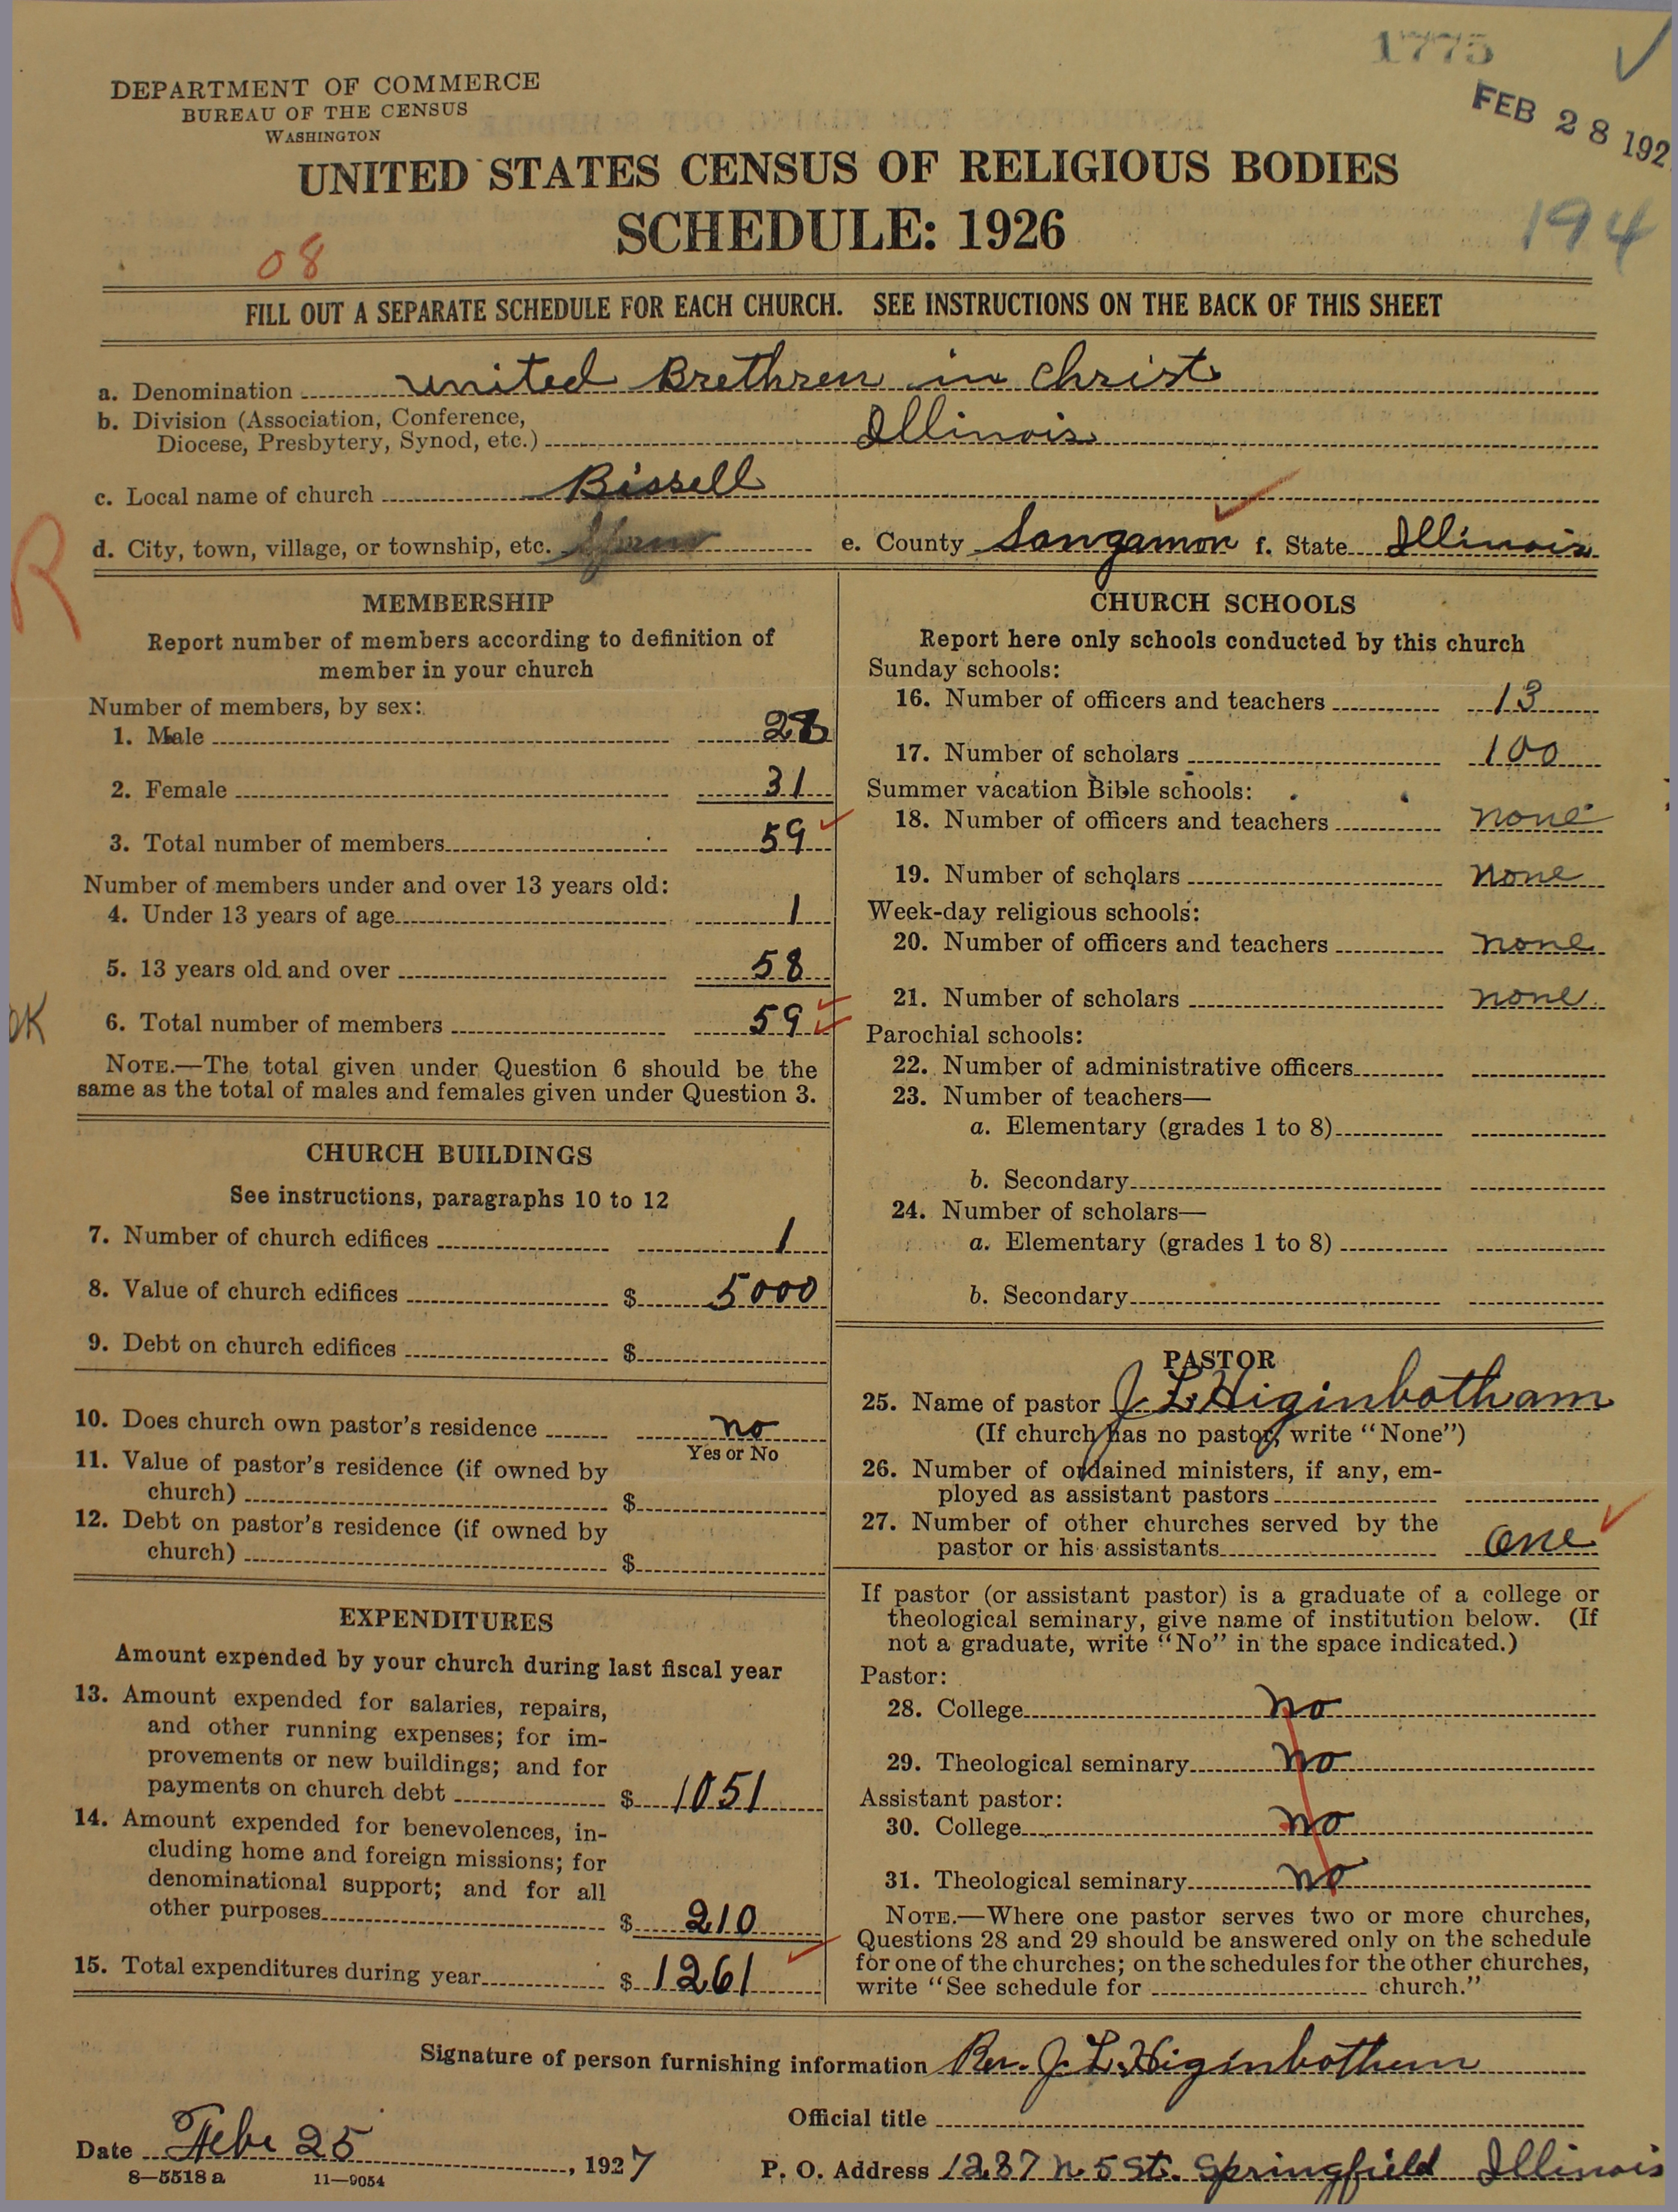 1775
FEB 28 192
194
DEPARTMENT OF COMMERCE
BUREAU OF THE CENSUS
WASHINGTON
UNITED STATES CENSUS OF RELIGIOUS BODIES
SCHEDULE: 1926
08
FILL OUT A SEPARATE SCHEDULE FOR EACH CHURCH. SEE INSTRUCTIONS ON THE BACK OF THIS SHEET
a. Denomination United Brethren in Christ
b. Division (Association, Conference,
Diocese, Presbytery, Synod, etc.) Illinois
c. Local name of church Bissell
d. City, town, village, or township, etc. e. County Sangamon f. State Illinois
R
MEMBERSHIP
Report number of members according to definition of
member in your church
Number of members, by sex:
1. Male 28
2. Female 31
3. Total number of members 59
Number of members under and over 13 years old:
4. Under 13 years of age 1
5. 13 years old and over 58
OK
6. Total number of members 59
NOTE.—The total given under Question 6 should be the
same as the total of males and females given under Question 3.
CHURCH BUILDINGS
See instructions, paragraphs 10 to 12
7. Number of church edifices 1
8. Value of church edifices $ 5000
9. Debt on church edifices $
10. Does church own pastor's residence no
Yes or No
11. Value of pastor's residence (if owned by
church) $
12. Debt on pastor's residence (if owned by
church) $
EXPENDITURES
Amount expended by your church during last fiscal year
13. Amount expended for salaries, repairs,
and other running expenses; for im-
provements or new buildings; and for
payments on church debt $ 1051
14. Amount expended for benevolences, in-
cluding home and foreign missions; for
denominational support; and for all
other purposes $ 210
15. Total expenditures during year $ 1261
CHURCH SCHOOLS
Report here only schools conducted by this church
Sunday schools:
16. Number of officers and teachers 13
17. Number of scholars 100
Summer vacation Bible schools:
18. Number of officers and teachers none
19. Number of scholars none
Week-day religious schools:
20. Number of officers and teachers none
21. Number of scholars none
Parochial schools:
22. Number of administrative officers
23. Number of teachers—
a. Elementary (grades 1 to 8)
b. Secondary
24. Number of scholars—
a. Elementary (grades 1 to 8)
b. Secondary
PASTOR
25. Name of pastor J. L. Higinbotham
(If church has no pastor, write "None")
26. Number of ordained ministers, if any, em-
ployed as assistant pastors
27. Number of other churches served by the
pastor or his assistants one
If pastor (or assistant pastor) is a graduate of a college or
theological seminary, give name of institution below. (If
not a graduate, write "No" in the space indicated.)
Pastor:
28. College no
29. Theological seminary no
Assistant pastor:
30. College no
31. Theological seminary no
NOTE.—Where one pastor serves two or more churches,
Questions 28 and 29 should be answered only on the schedule
for one of the churches; on the schedules for the other churches,
write "See schedule for church."
Signature of person furnishing information Rev. J. L. Higinbotham
Official title
Date Feb. 25, 1927
P. O. Address 1237 N. 5 St. Springfield Illinois
8—5518 a 11—9054